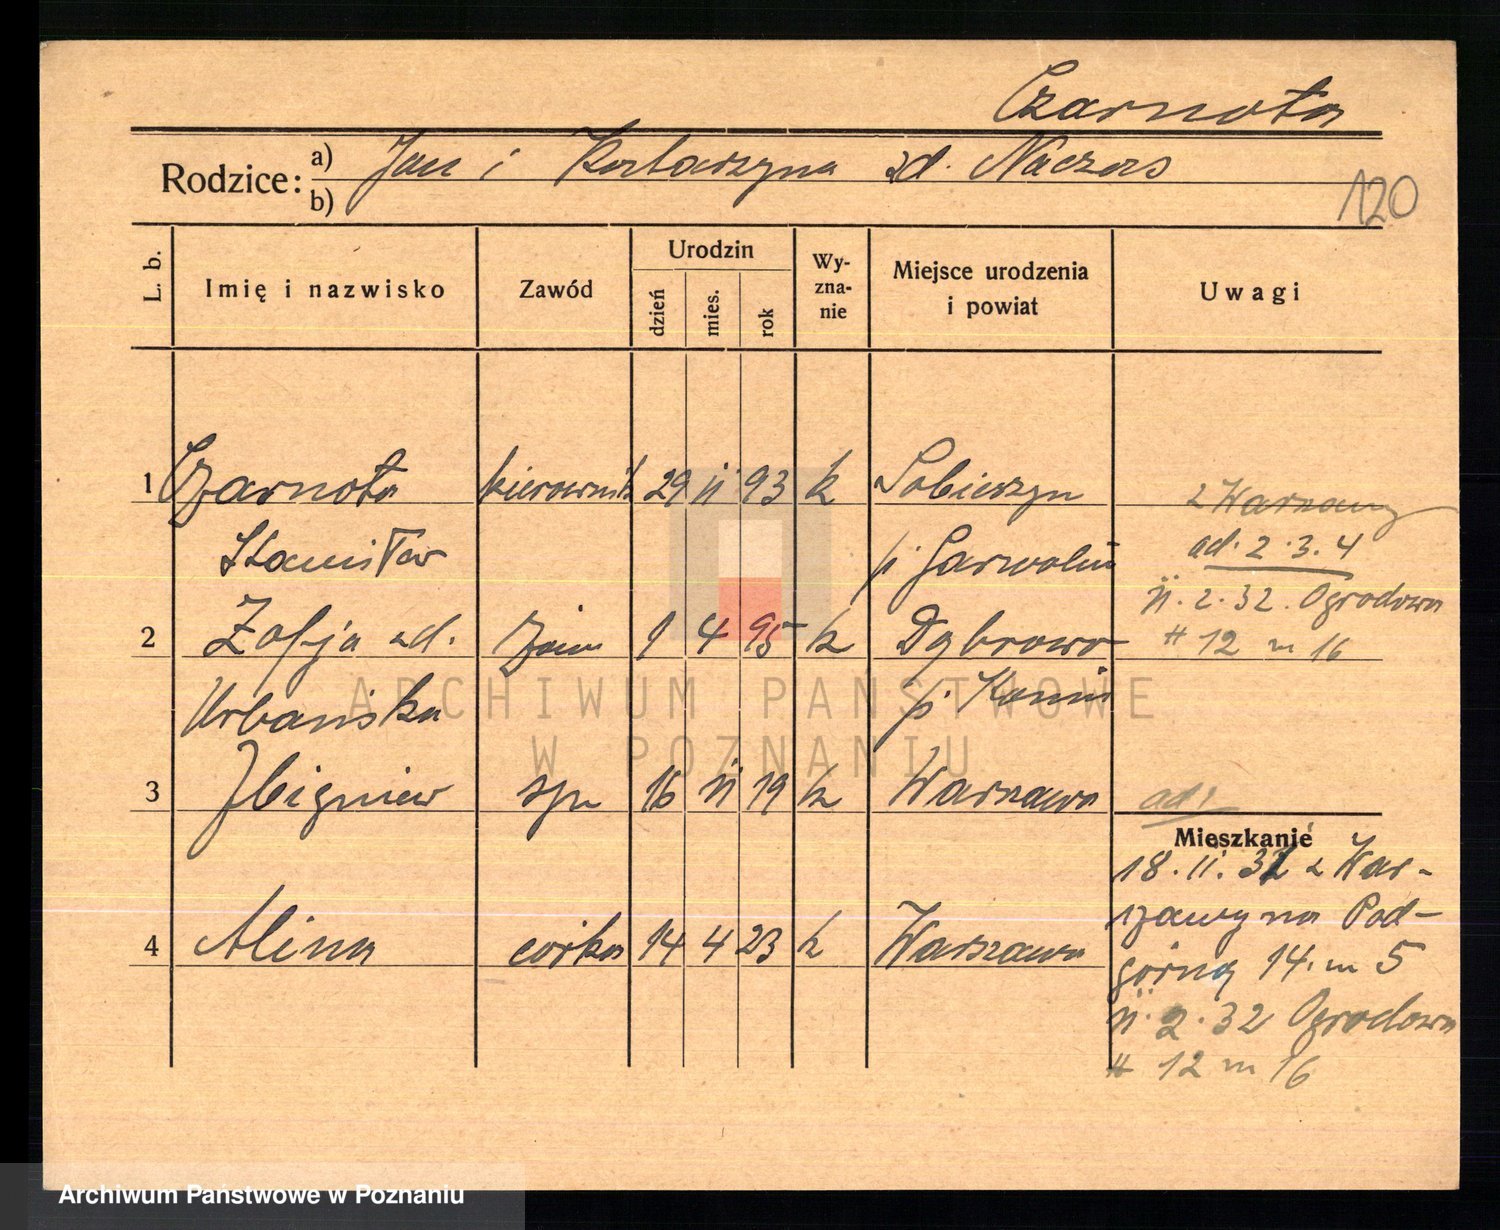 Czarnota
Rodzice:
a) Jan i Katarzyna zd. Naczas
b)
120
L. b.
Imię i nazwisko
Zawód
Urodzin
dzień
mies.
rok
Wy-
zna-
nie
Miejsce urodzenia
i powiat
Uwagi
1 Czarnota kierownik 29 11 93 k Sobieszyn
Stanisław p. Garwolin
z Warszawy
ad. 2. 3. 4
11. 2. 32. Ogrodowa
# 12 m 16
2 Zofja zd. żona 1 4 95 k Dąbrowa
Urbańska p. Konin
3 Zbigniew syn 16 11 19 k Warszawa
ad 1
Mieszkanie
18. 11. 31 z War-
szawy na Pod-
górną 14. m 5
11. 2. 32 Ogrodowa
# 12 m 16
4 Alina córka 14 4 23 k Warszawa
ARCHIWUM PAŃSTWOWE
W POZNANIU
Archiwum Państwowe w Poznaniu